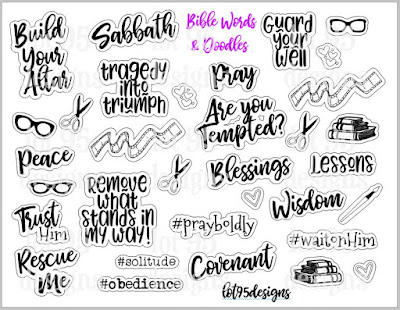 Build
Your
Altar
Sabbath
Bible Words
& Doodles
Guard
your
well
tragedy
into
triumph
Pray
Are you
Tempted?
Peace
Blessings
Lessons
Remove
what
stands in
my way!
Trust
Him
Wisdom
#prayboldly
#waitonHim
Rescue
Me
#solitude
#obedience
Covenant
lot95designs